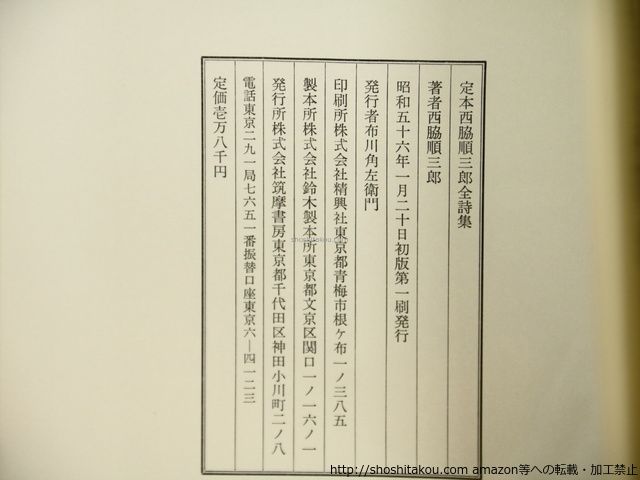 定本西脇順三郎全詩集
著者西脇順三郎
昭和五十六年一月二十日初版第一刷発行
発行者布川角左衛門
印刷所株式会社精興社東京都青梅市根ヶ布一ノ三八五
製本所株式会社鈴木製本所東京都文京区関口一ノ一六ノ一
発行所株式会社筑摩書房東京都千代田区神田小川町二ノ八
電話東京二九一局七六五一番振替口座東京六―四一二三
定価壱万八千円
shoshitakou.com
http://shoshitakou.com amazon等への転載・加工禁止